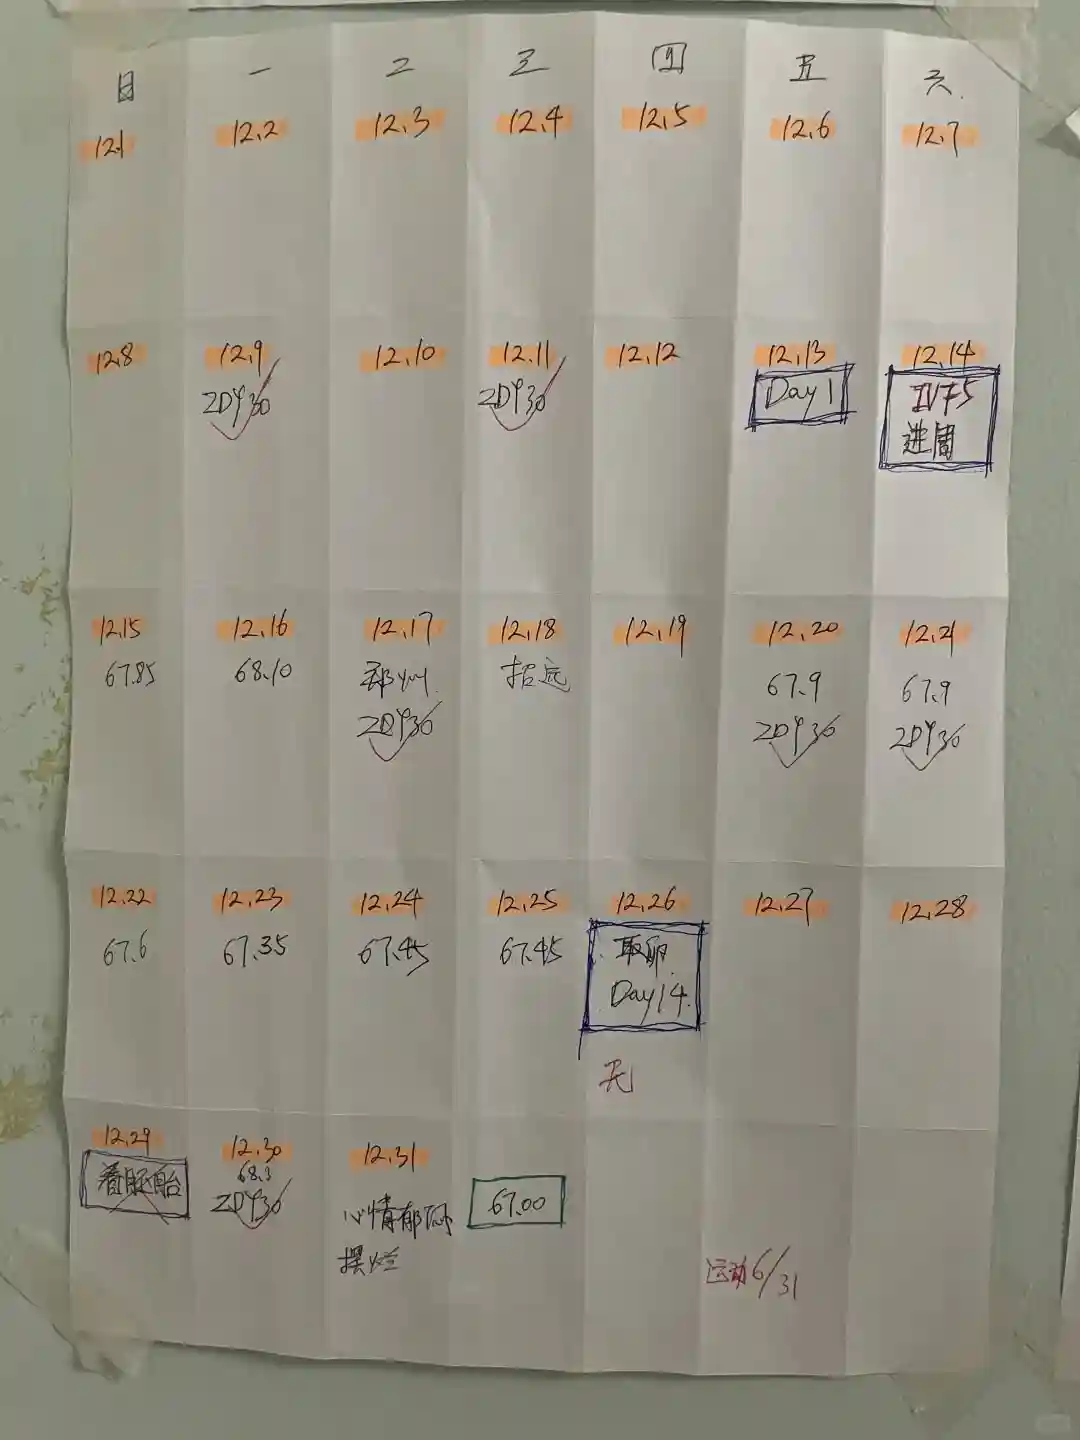 日 一 二 三 四 五 六
12.1 12.2 12.3 12.4 12.5 12.6 12.7
12.8 12.9 12.10 12.11 12.12 12.13 12.14
ZDY30 ZDY30 Day 1 IVF5
进周
12.15 12.16 12.17 12.18 12.19 12.20 12.21
67.85 68.10 郑州 招远 67.9 67.9
ZDY30 ZDY30 ZDY30
12.22 12.23 12.24 12.25 12.26 12.27 12.28
67.6 67.35 67.45 67.45 取卵
Day14
无
12.29 12.30 12.31
看胚胎 68.3 67.00
ZDY30 心情郁闷
摆烂
运动6/31